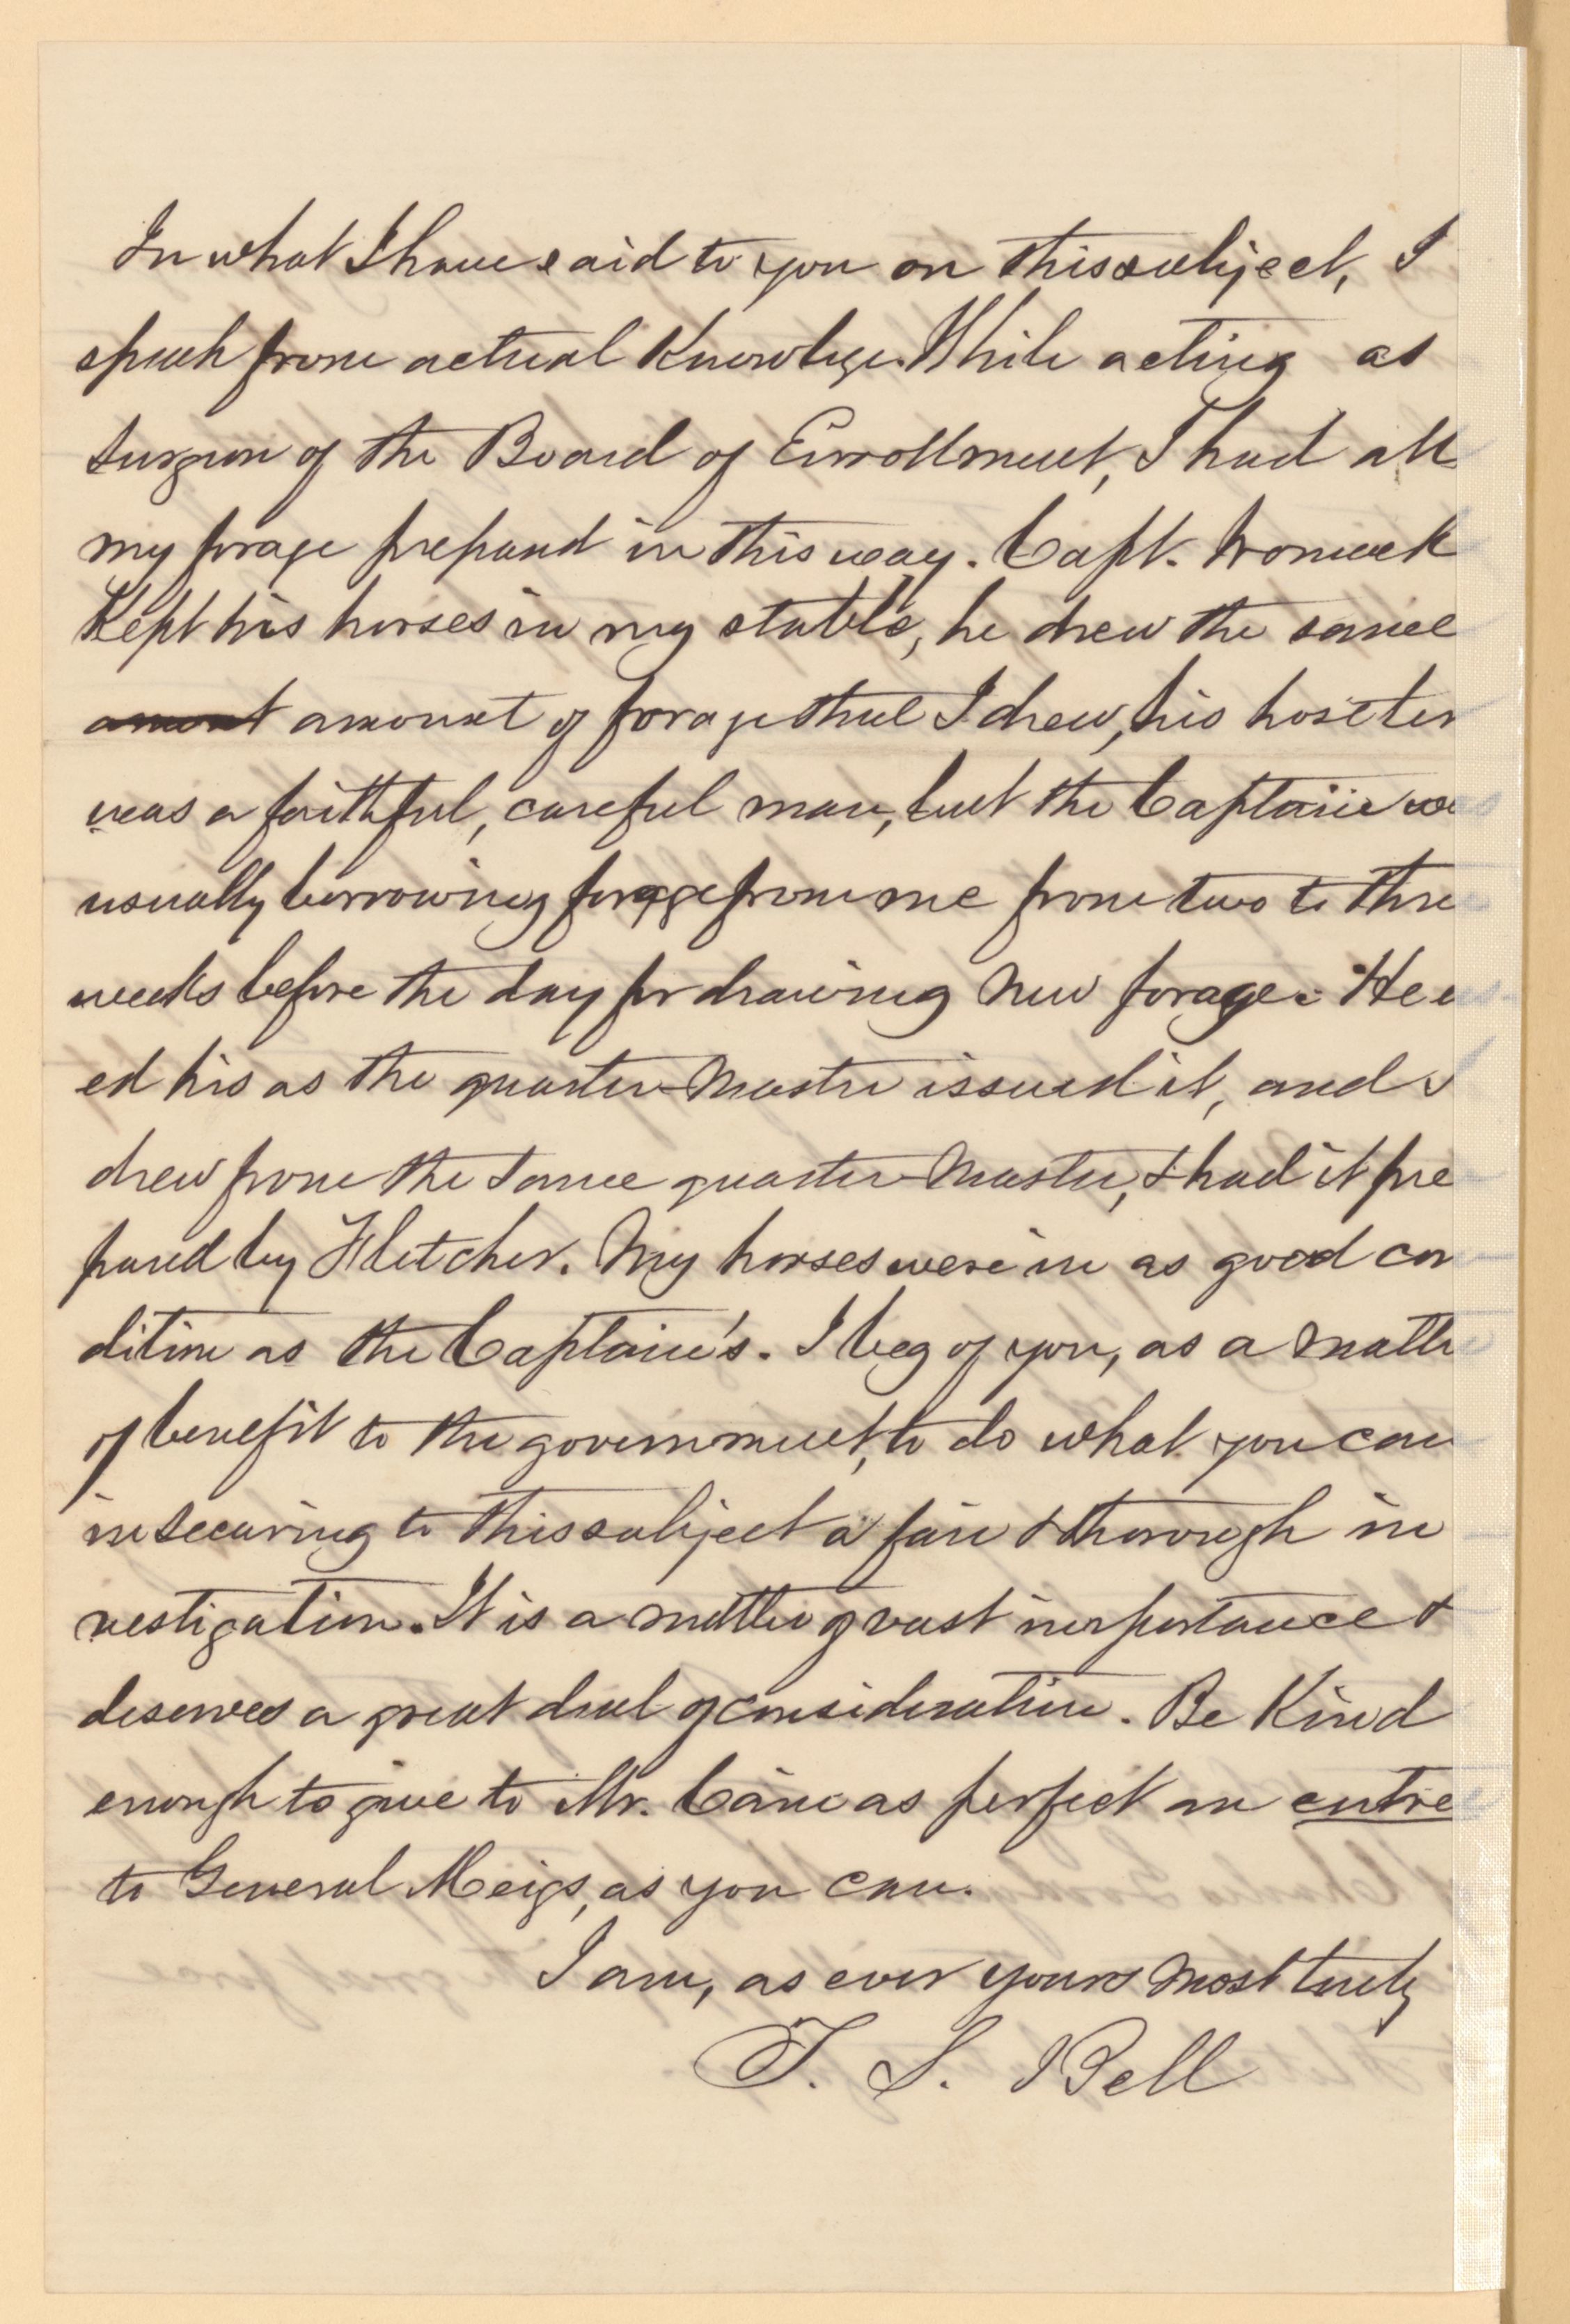 In what I have said to you on this subject, I
speak from actual Knowlege. While acting as
Surgeon of the Board of Enrollment, I had all
my forage prepared in this way. Capt. Womack
Kept his horses in my stable, he drew the same
amont amount of forage that I drew, his hostler
was a faithful, careful man, but the Captain was
usually borrowing forage from me from two to three
weeks before the day for drawing new forage. He us-
ed his as the quarter-master issued it, and I
drew from the same quarter-master, & had it pre
pared by Fletcher. My horses were in as good con
dition as the Captain's. I beg of you, as a matter
of benefit to the government, to do what you can
in securing to this subject a fair & thorough in
vestigation. It is a matter of vast importance &
deserves a great deal of consideration. Be Kind
enough to give to Mr. Cain as perfect an entree
to General Meigs, as you can.
I am, as ever yours most truly
T. S. Bell